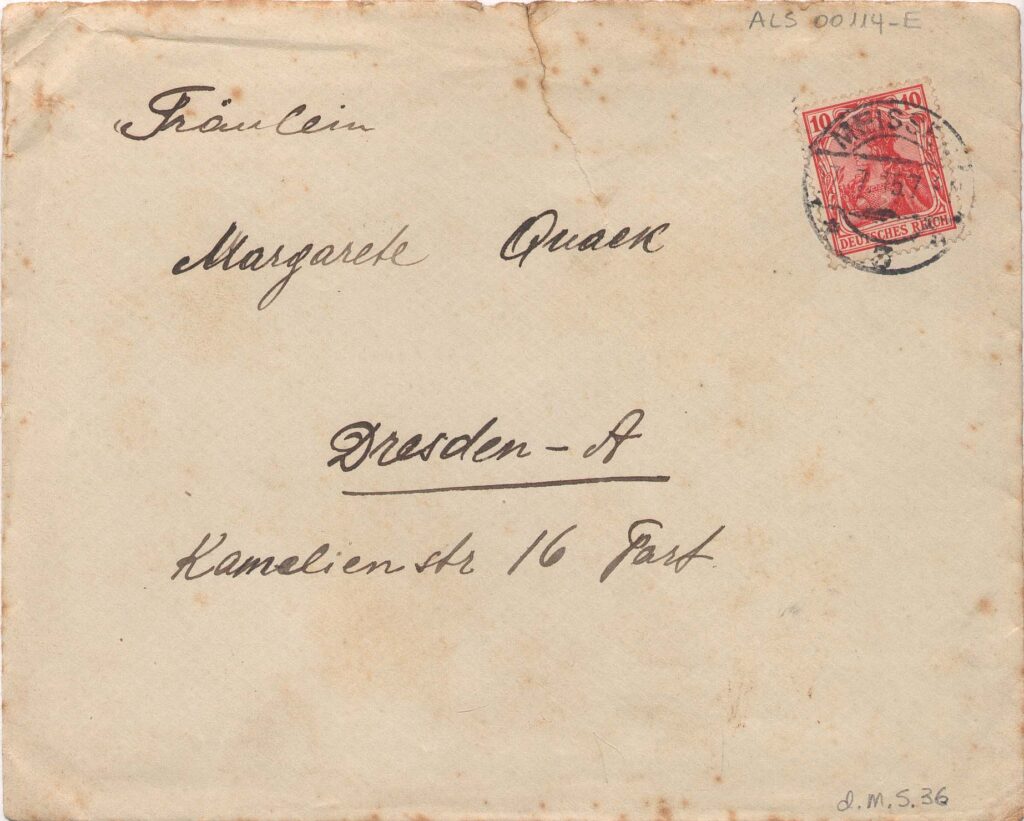 ALS 00114-E
Fräulein
10 10
MEISS
DEUTSCHES REICH
3
Margarete Quaek
Dresden-A
Kamelienstr 16 Part.
d.M.S.36